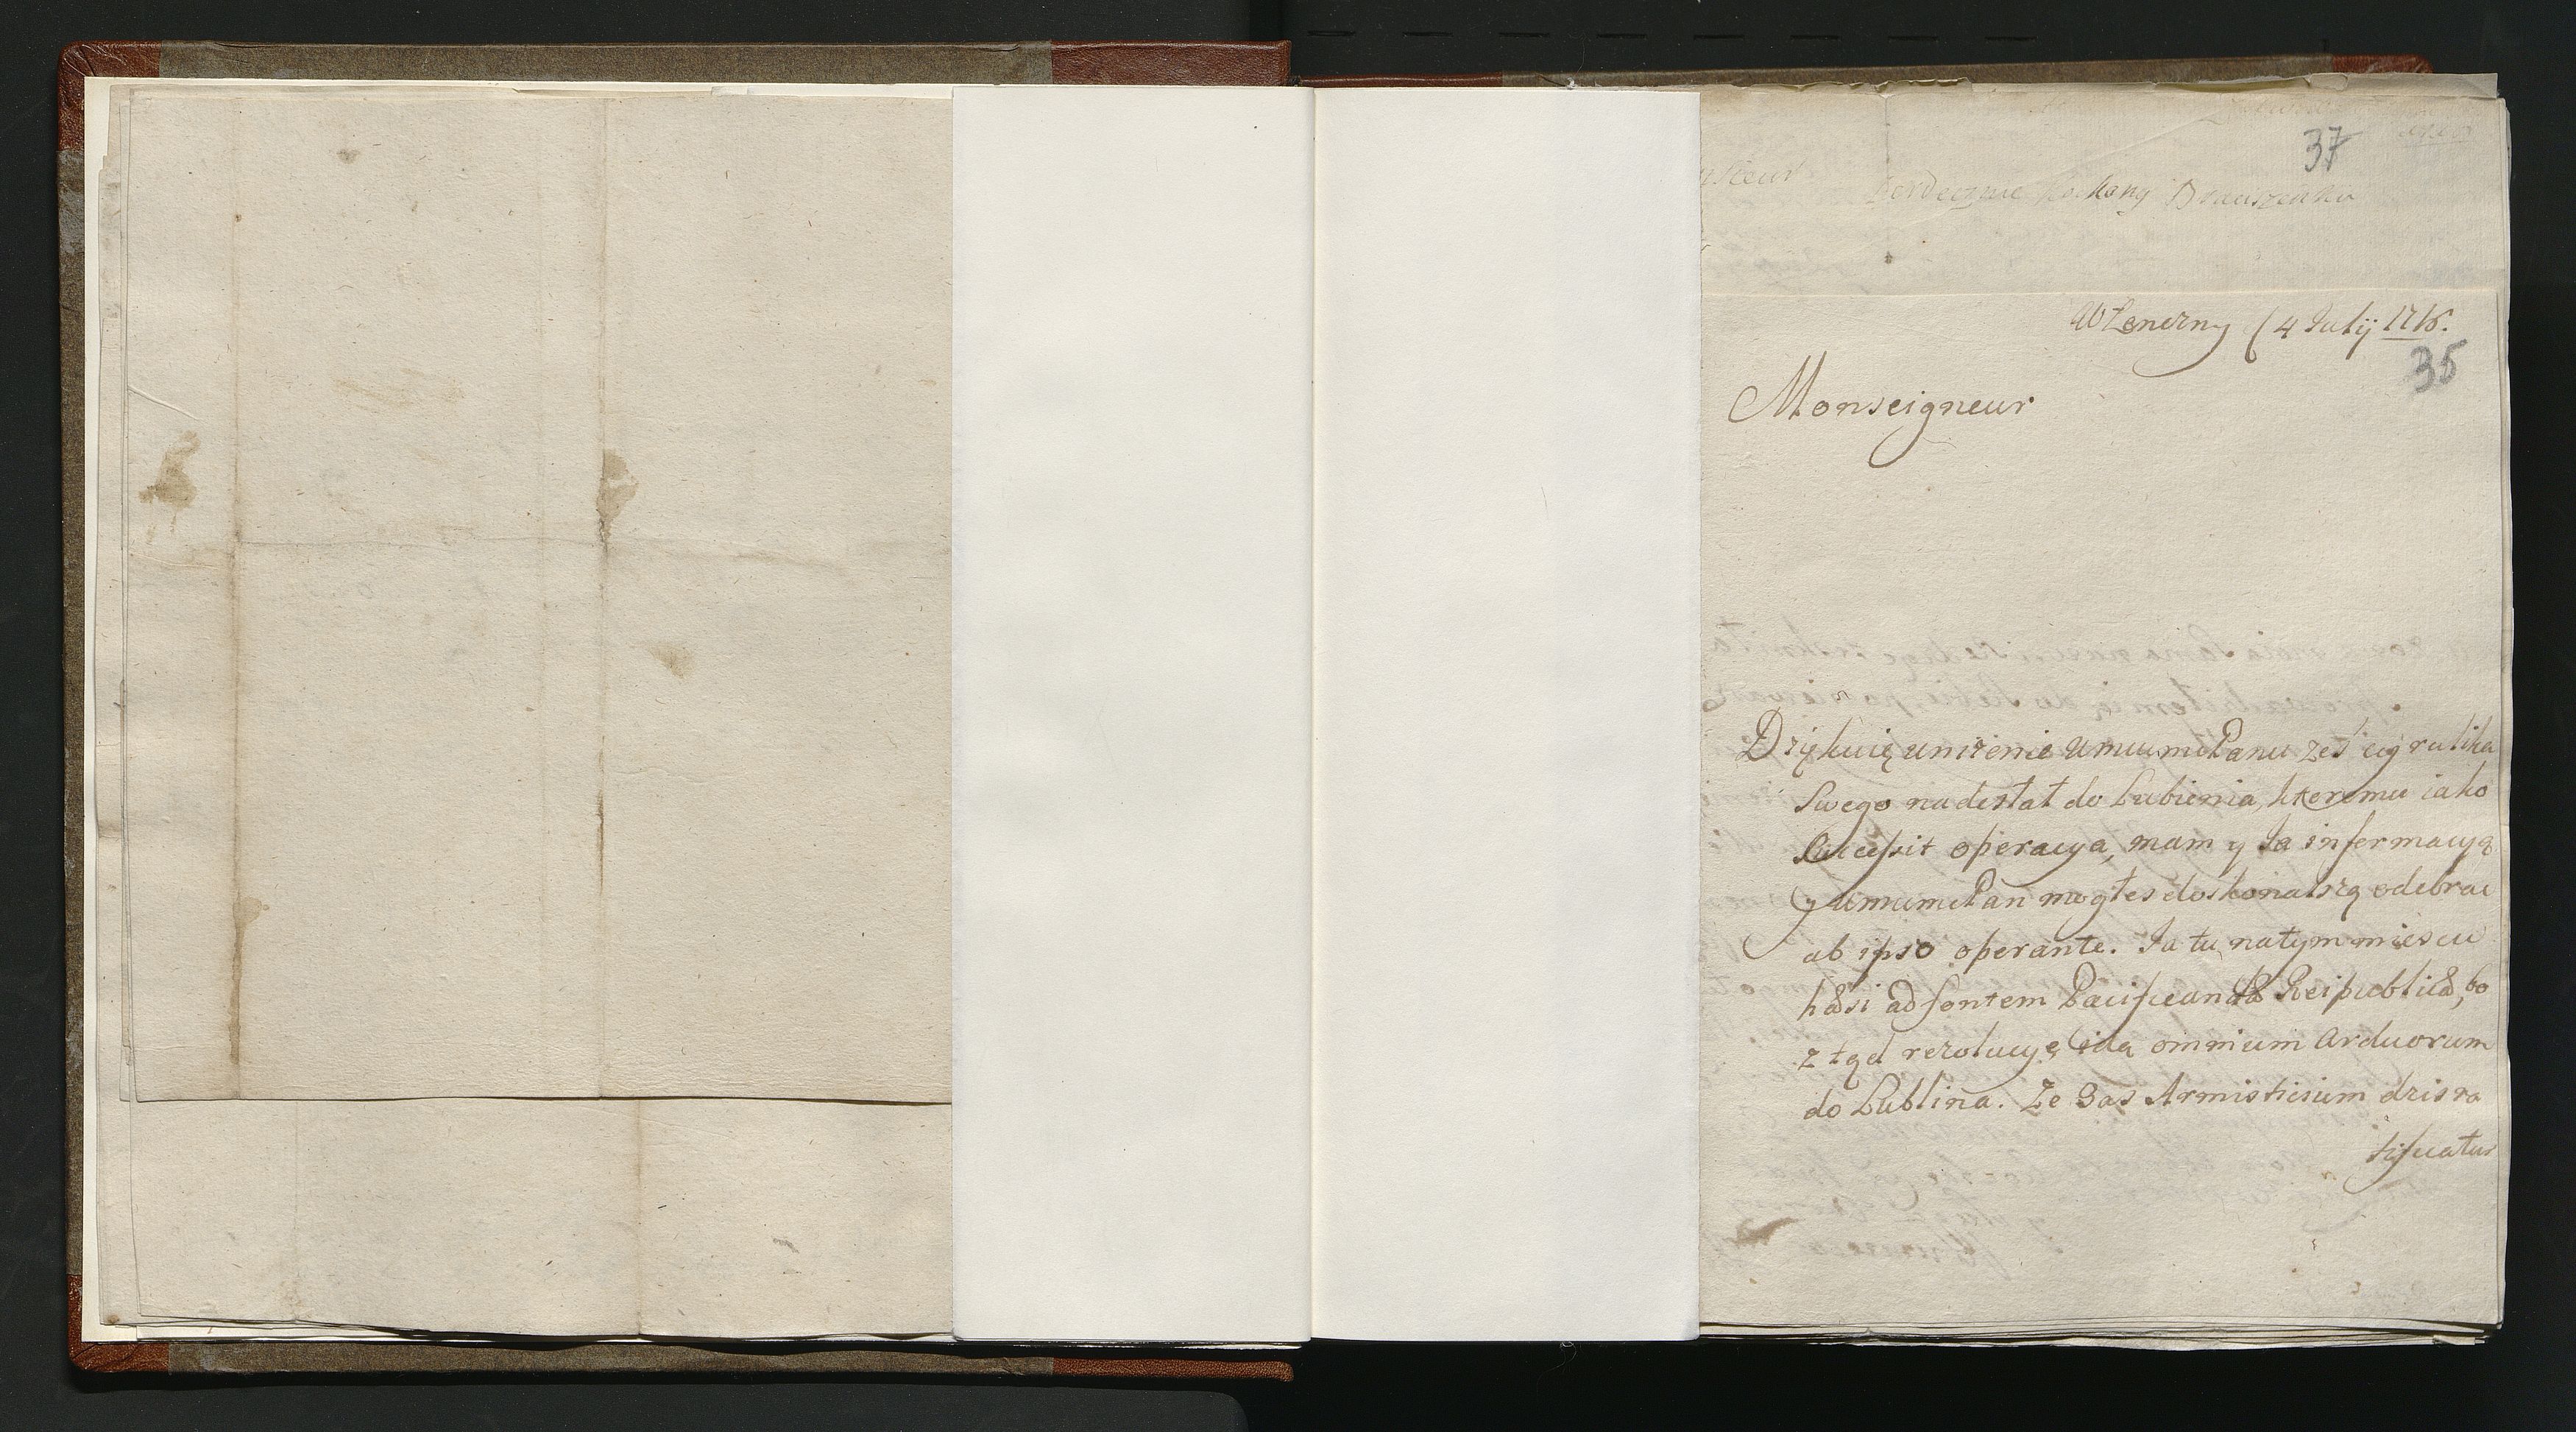 37
kochany Braciszenku
W Zenerny (4 Julij 1716.
35
Monseigneur
Dziękuię unizenie Wmumm Panu zes cyrulika
Swego nadesłał do Lubienia, ktoremu iako
Successit operacya, mam y Ja informacyą
y Wmumm Pan mogłes doskonalszą odebrac
ab ipso operante. Ja tu na tym miescu
hæsi ad fontem Pacificandæ Reipublicæ, bo
z tąd rezolucye idą omnium arduorum
do Lublina. Ze zas Armisticium dzis ra
tificatur